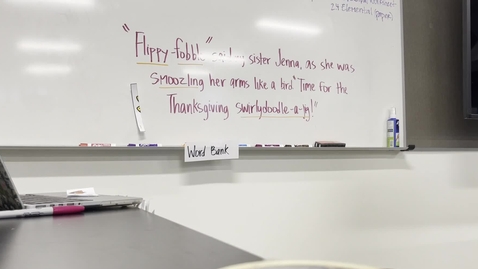 "Flippy-fobble" sister Jenna, as she was
smoozling her arms like a bird." Time for the
Thanksgiving swirlydoodle-a-jig!"
Word Bank